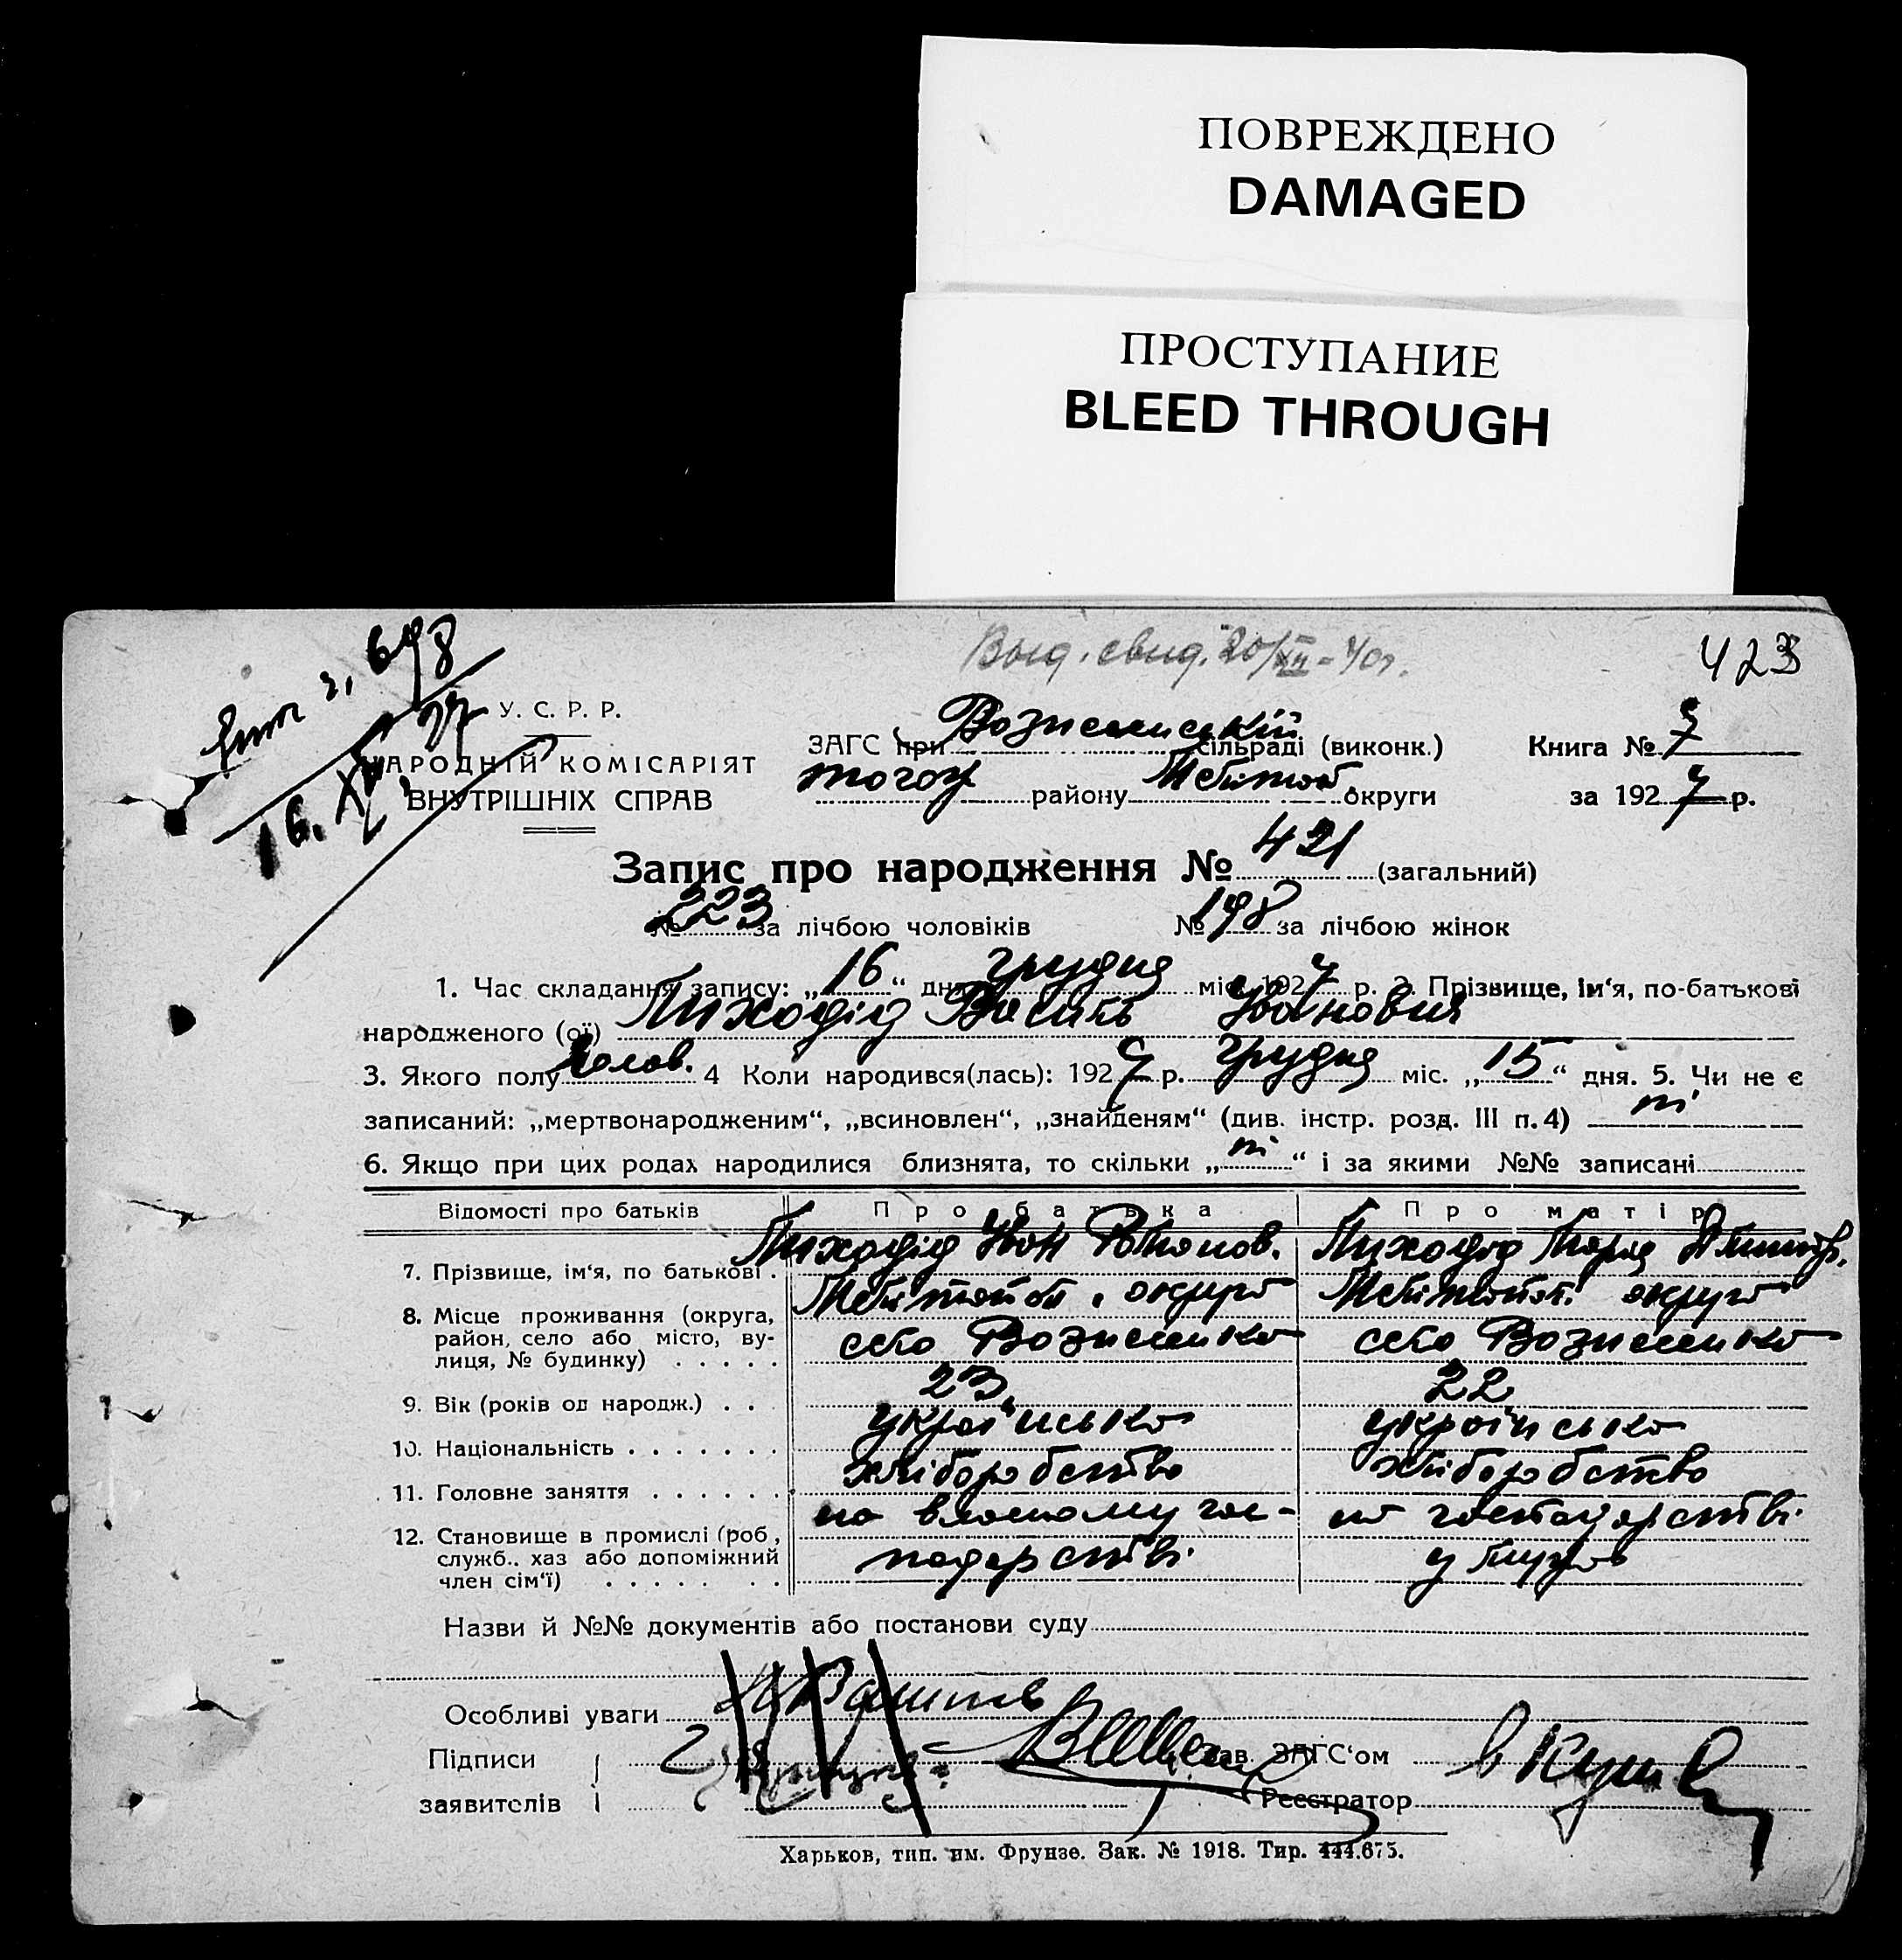 ПОВРЕЖДЕНО
DAMAGED
ПРОСТУПАНИЕ
BLEED THROUGH
Выд. свид. 20/XII-40г.
423
698
16. XII
У. С. Р. Р.
НАРОДНІЙ КОМІСАРІЯТ
ВНУТРІШНІХ СПРАВ
ЗАГС при Вознесенській сільраді (виконк.)
Книга № 7
того ж району Мелітоп. округи
за 1927 р.
Запис про народження № 421 (загальний)
№ 223 за лічбою чоловіків № 198 за лічбою жінок
1. Час складання запису: „16“ дня грудня міс. 1927 р. 2. Прізвище, ім‘я, по-батькові
народженого (ої) Лиходід Василь Іванович
3. Якого полу чолов. 4 Коли народився(лась): 1927 р. грудня міс. „15“ дня. 5. Чи не є
записаний: „мертвонародженим“, „всиновлен“, „знайденям“ (див. інстр. розд. III п. 4) ні
6. Якщо при цих родах народилися близнята, то скільки „ні“ і за якими №№ записані
Відомості про батьків Про батька Про матір
7. Прізвище, ім‘я, по батькові . Лиходід Іван Романов. Лиходід Марія Дмитр.
8. Місце проживання (округа, Мелітопол. округа Мелітопол. округа
район, село або місто, ву-
лиця, № будинку) . . . . . село Вознесенка село Вознесенка
9. Вік (років од народж.) . . . 23 22
10. Національність . . . . . . . українська українська
11. Головне заняття . . . . . . хліборобство хліборобство
12. Становище в промислі (роб., на власному гос- на господарстві
служб.. хаз або допоміжний подарстві у мужа
член сім‘ї) . . . . . . .
Назви й №№ документів або постанови суду
Особливі уваги
Підписи
заявителів
Зав. ЗАГС‘ом
Реєстратор
Харьков, тип. им. Фрунзе. Зак. № 1918. Тир. 444.675.